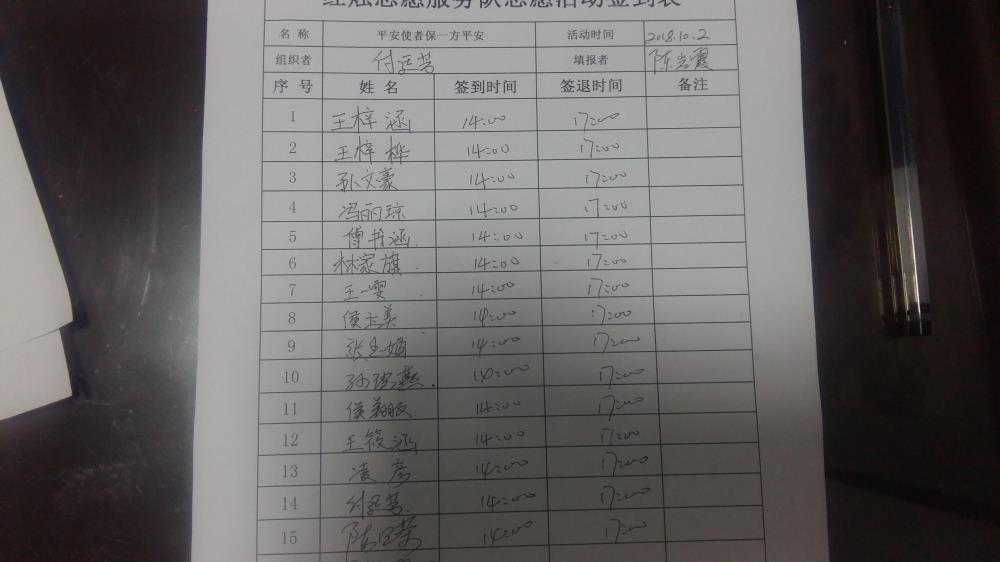 红烛志愿服务队志愿活动签到表
名 称 平安使者保一方平安 活动时间 2018.10.2
组织者 付延芳 填报者 陈岩霞
序 号 姓 名 签到时间 签退时间 备注
1 王梓涵 14:00 17:00
2 王梓桦 14:00 17:00
3 孙文豪 14:00 17:00
4 冯丽琼 14:00 17:00
5 傅梓涵 14:00 17:00
6 林家旗 14:00 17:00
7 王一雯 14:00 17:00
8 侯玉美 14:00 17:00
9 张玉娟 14:00 17:00
10 孙瑞燕 14:00 17:00
11 侯翔 14:00 17:00
12 王筱涵 14:00 17:00
13 凌彦 14:00 17:00
14 付延芳 14:00 17:00
15 陈 荣 14:00 17:00